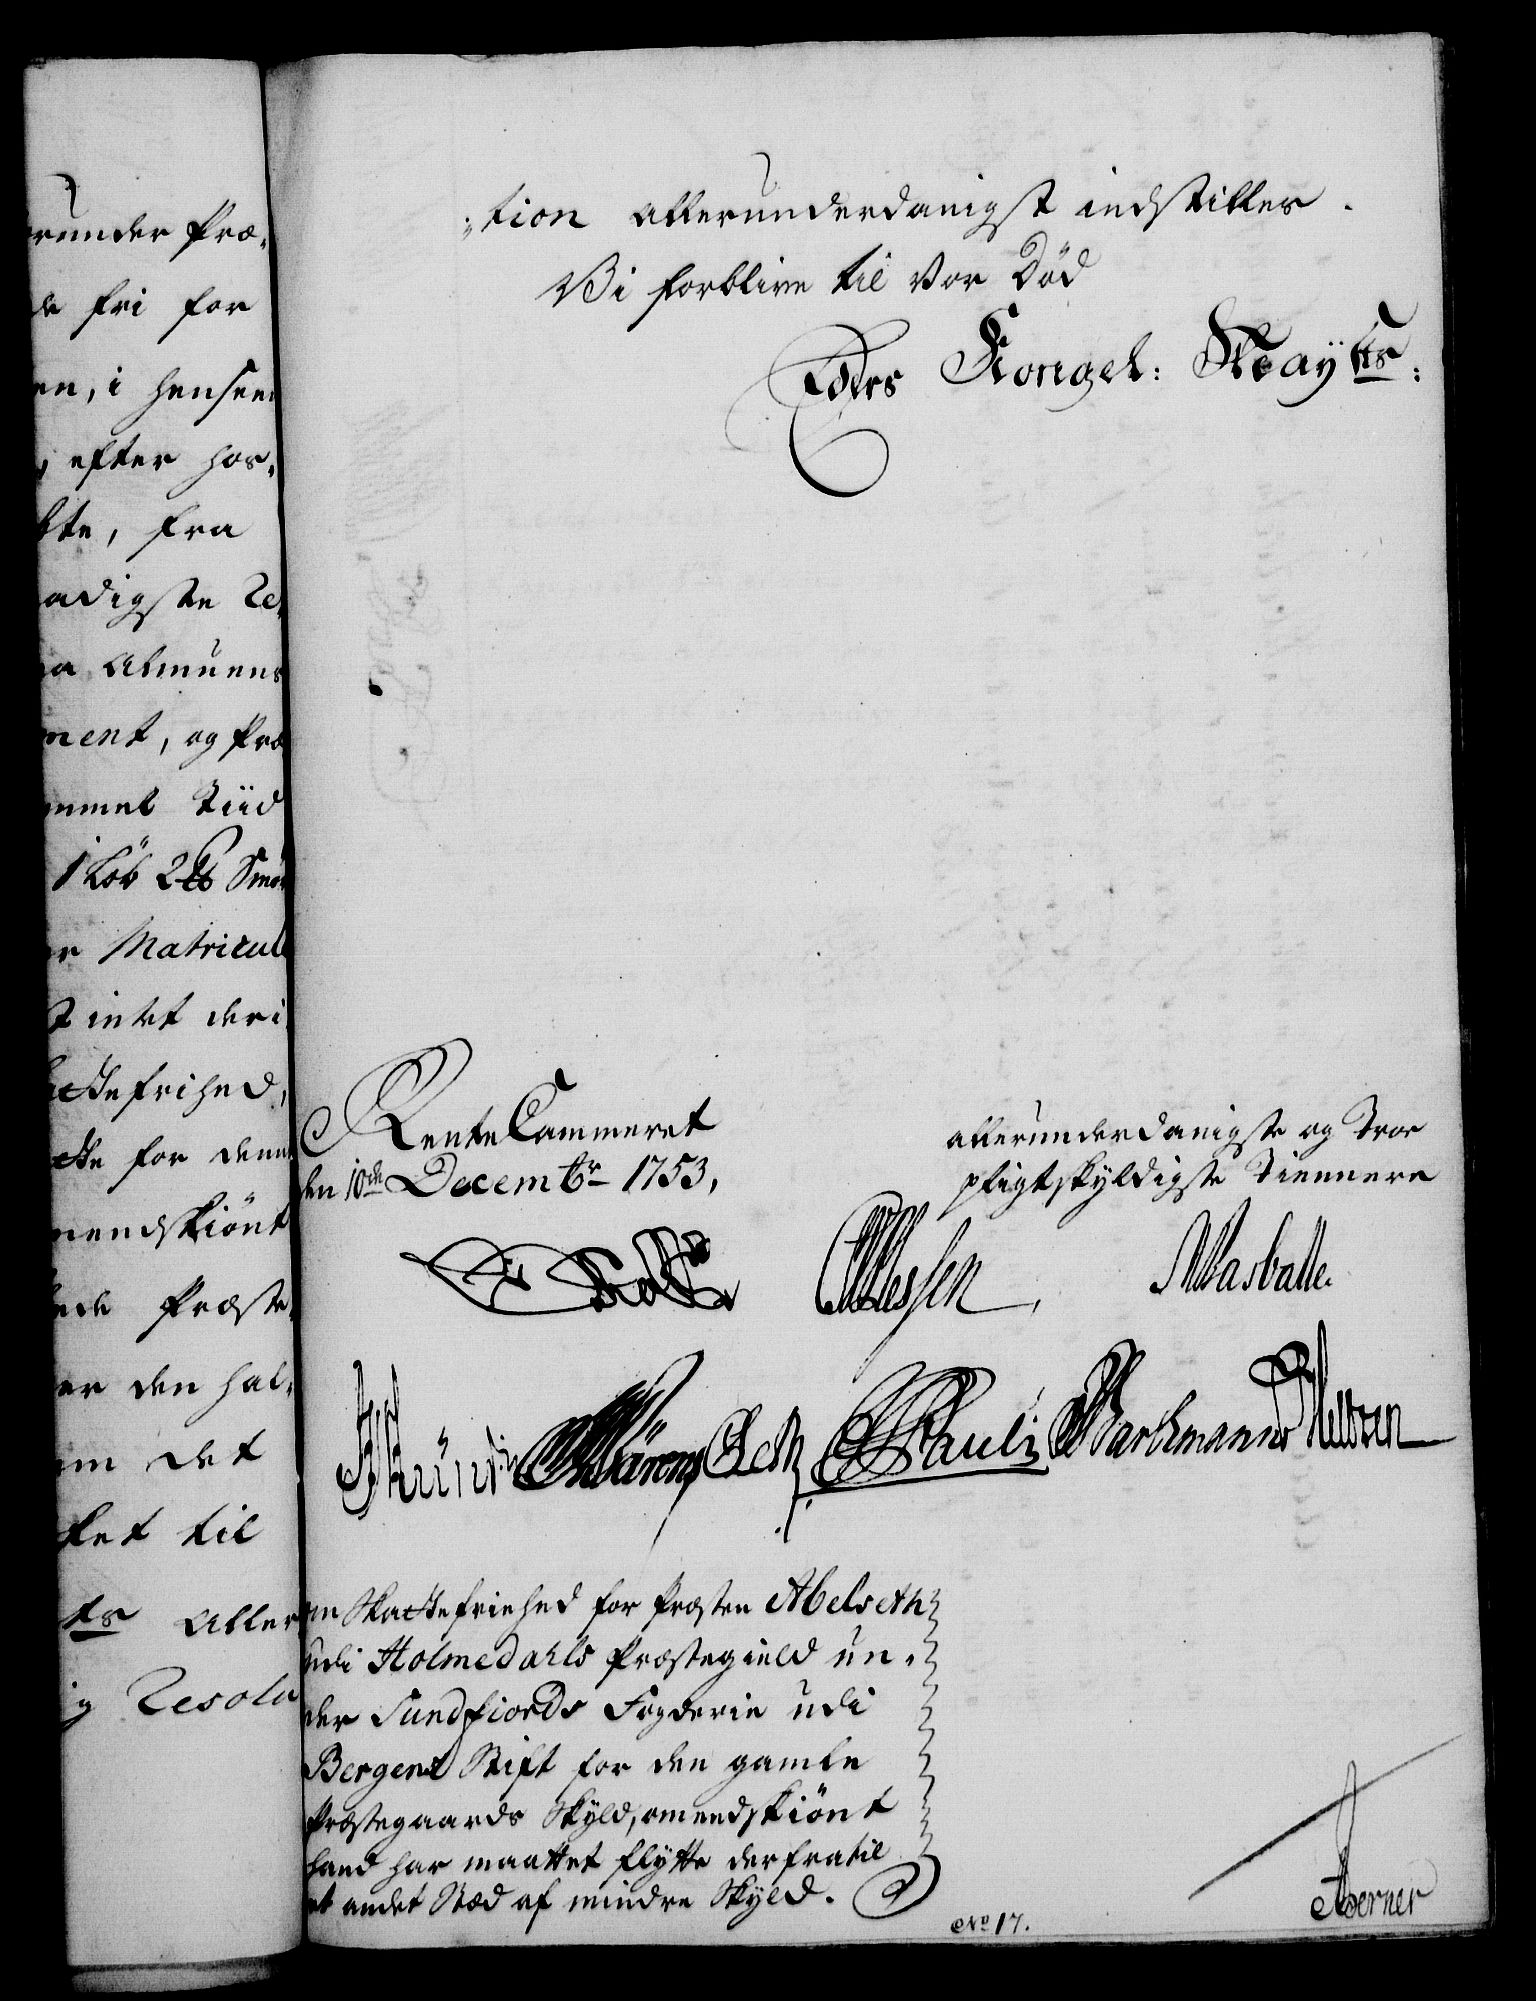 runder Præ-
de fri for
en, i henseen
efter hos-
te, fra
aadigste Re-
a Almuens
ment, og Præ
mmel Tiid
1 Løb 2 ℔ Smør
er Matricul
t intet deri
Skattefrihed,
for denn
omendskiønt
Præste-
er den hal-
det
tet til
ts Aller
g Resolu
-tion allerunderdanigst indstilles.
Vi forblive til vor Død
Eders Kongel: Mayts:
RenteCammeret
den 10de Decembr 1753,
allerunderdanigste og Troe
pligtskyldigste Tiennere
Holck Wessen, Masballe.
Pauli Barthmann
om Skattefriehed for Præsten Abelseth
udi Holmedahls Præstegield un-
der Sundfiords Fogderie udi
Bergens Stift for den gamle
Præstegaards Skyld, omendskiønt
hand har maattet flytte derfra til
et andet Stæd af mindre Skyld.
No 17.
Aderner